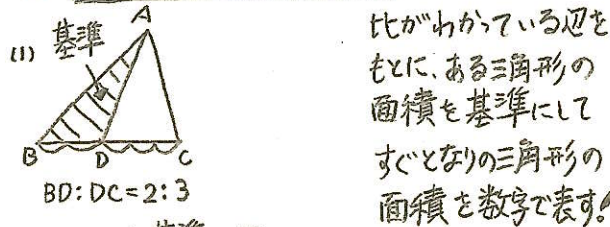 (1) 基準
A
B D C
BD:DC=2:3
比がわかっている辺を
もとに、ある三角形の
面積を基準にして
すぐとなりの三角形の
面積を数字で表す。